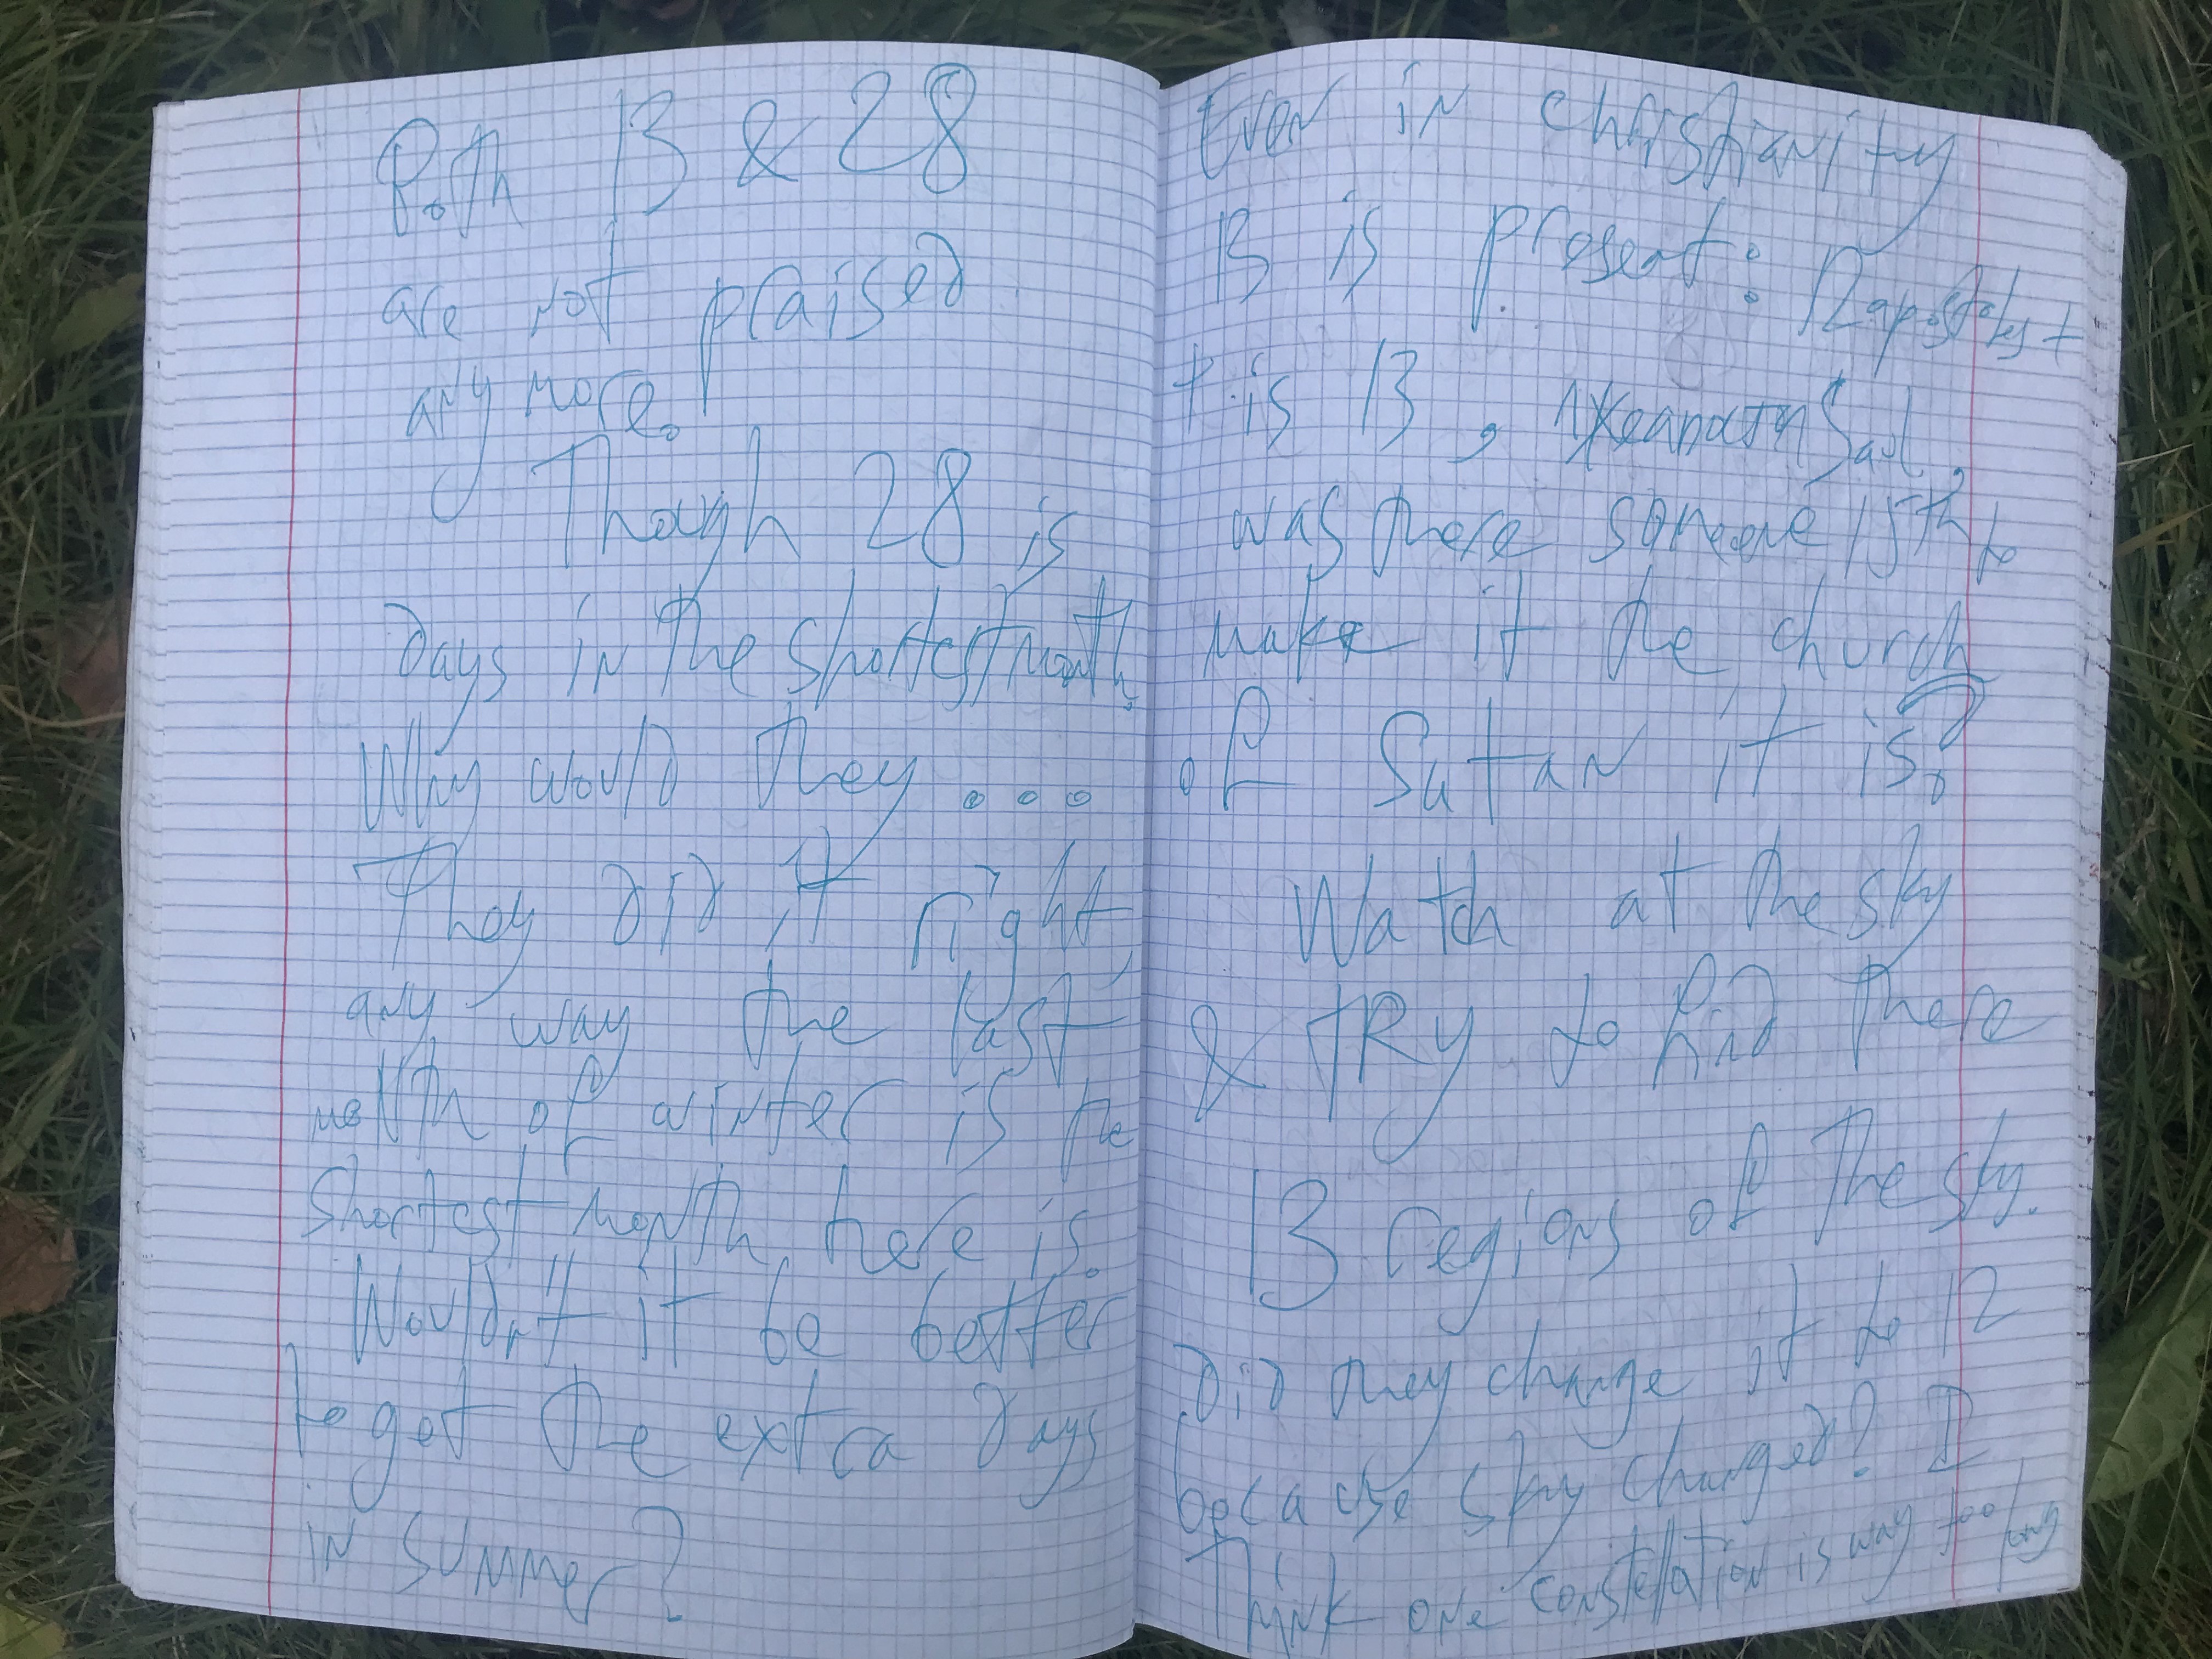 Both 13 & 28
are not praised
any more.
Though 28 is
Days in the shortest month,
Why would they...
They DID, it right
any way the last
month of winter is the
shortest month there is.
Wouldn't it be better
to get the extra days
in summer?
Even in christianity
13 is present: 12 apostoles +
+ is 13, Saul
was there someone 15th to
make it the church
of Sutan it is.
Watch at the sky
& tRy to find there
13 regions of the sky.
DiD they change it to 12
because sky changed? I
think one constellation is way too long